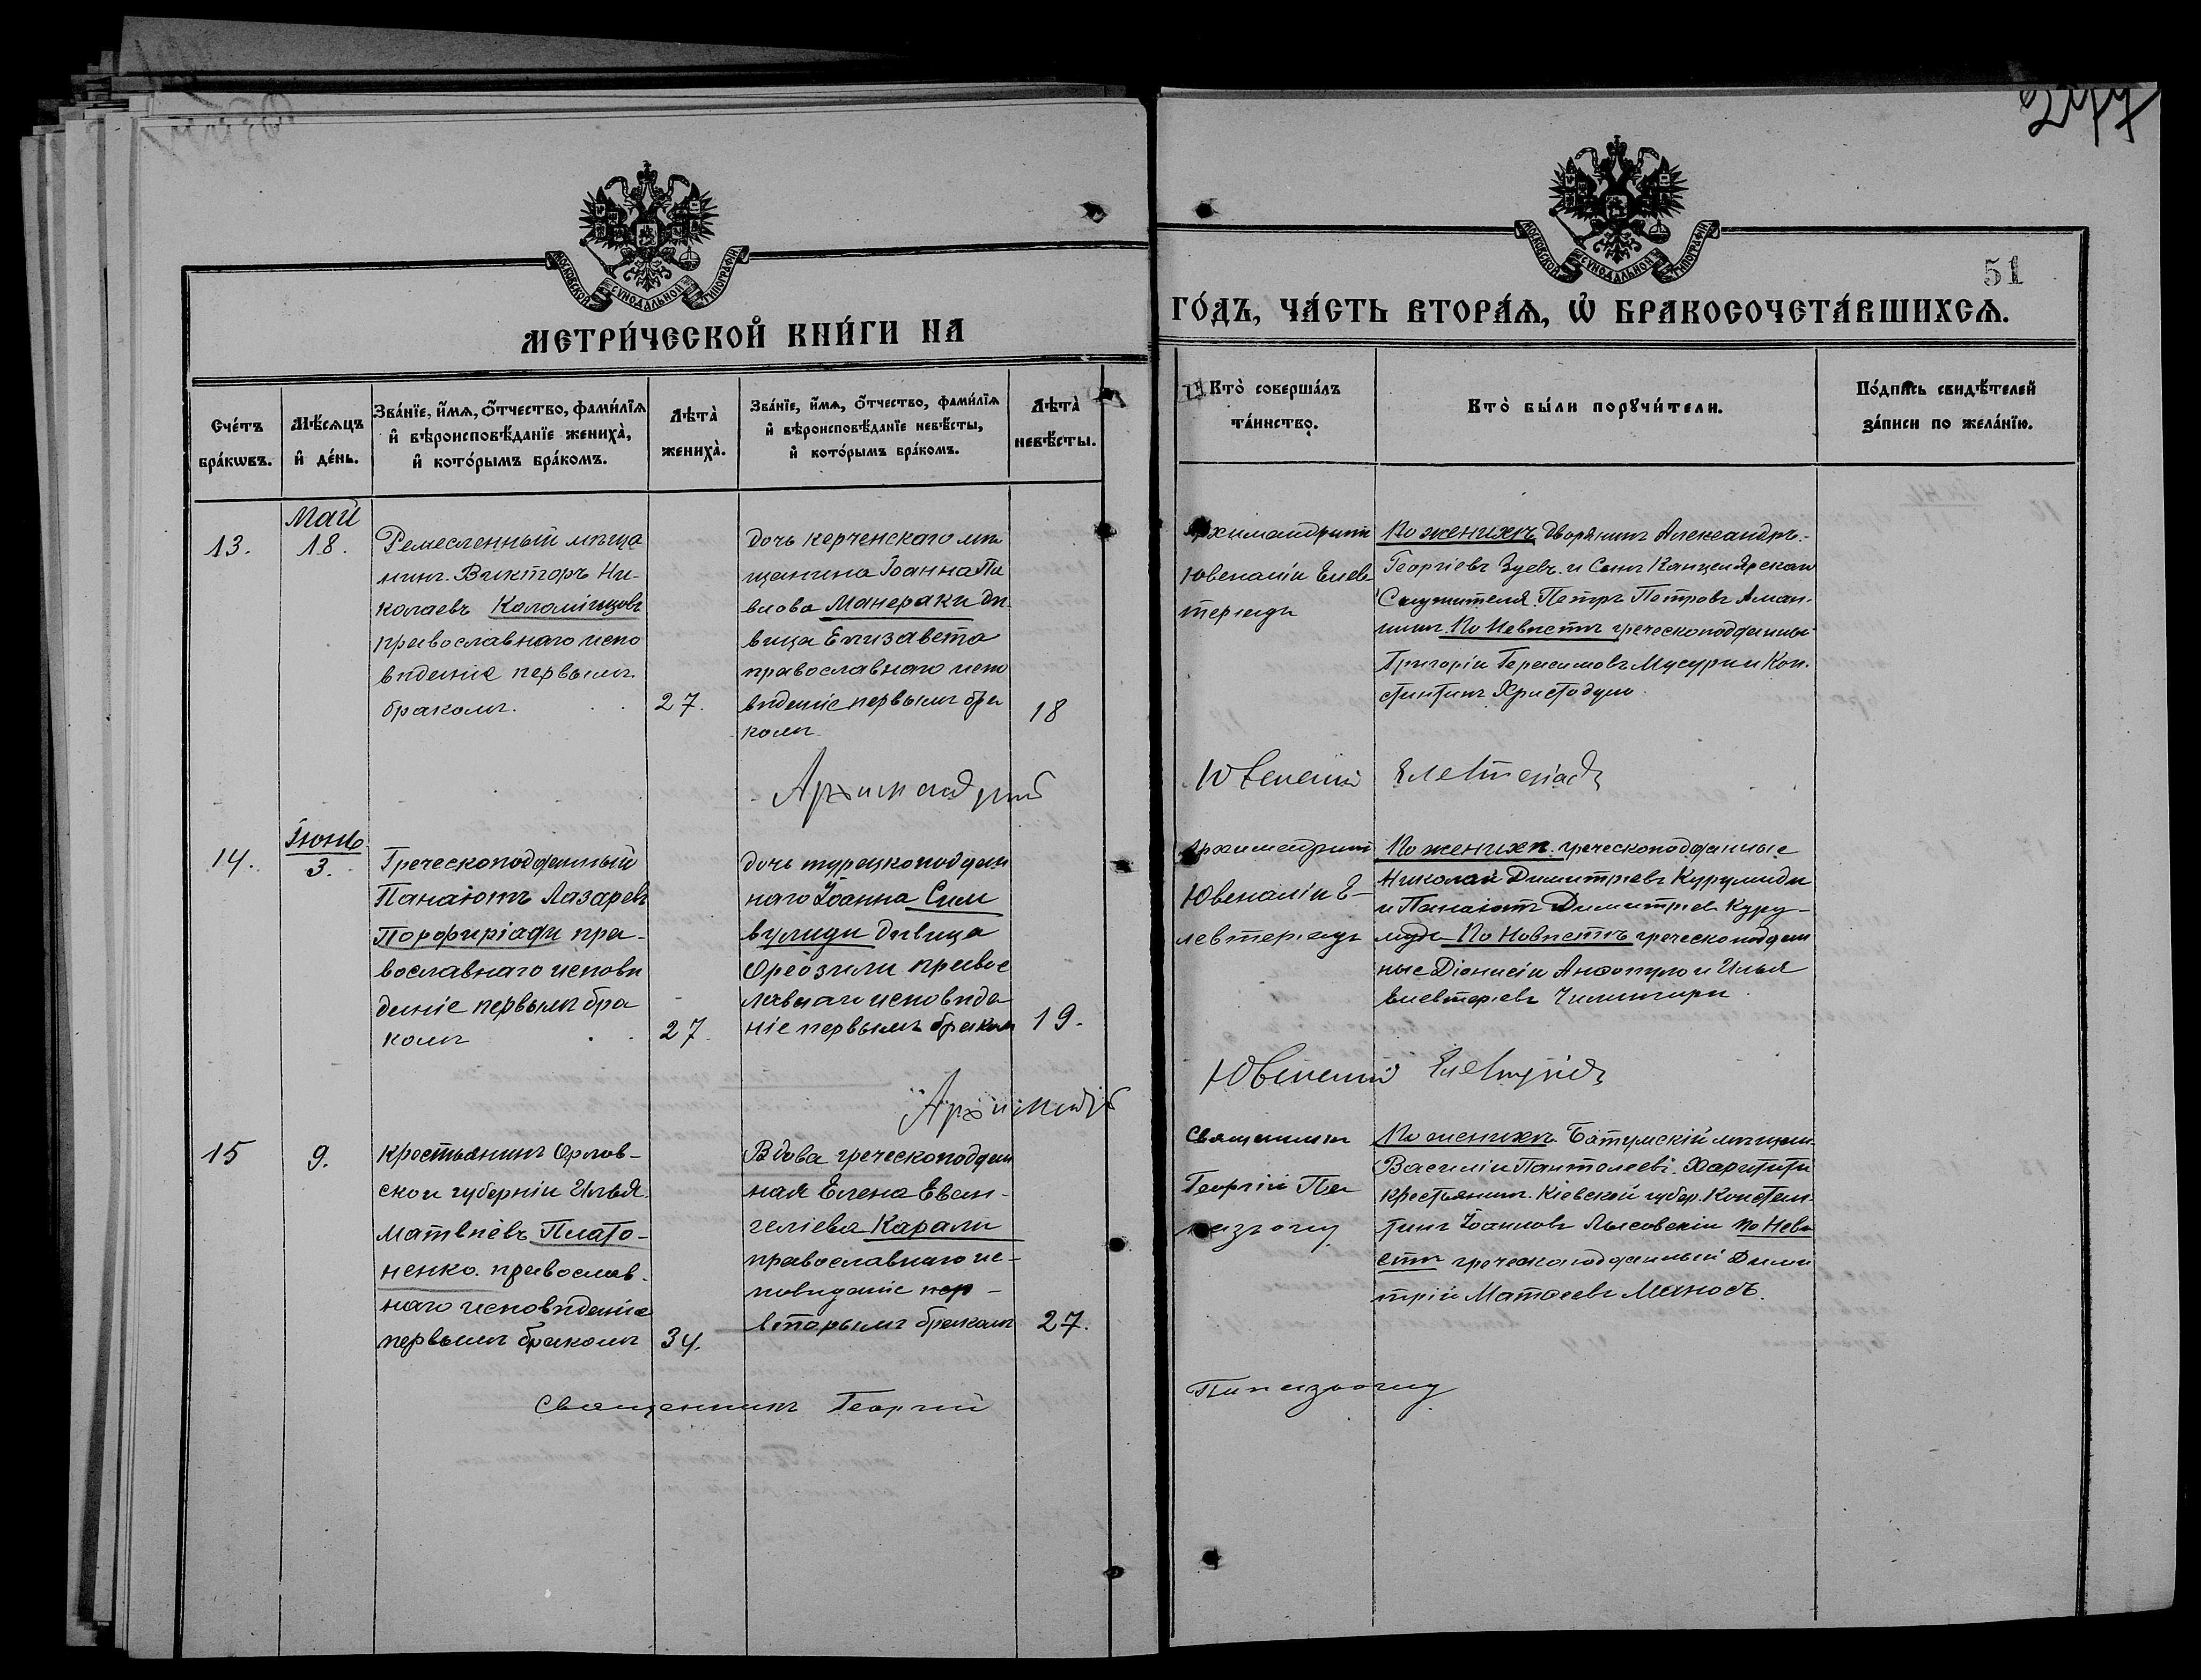 МОСКОВСКОЙ СѴНОДАЛЬНОЙ ТИПОГРАФІИ
МЕТРИ́ЧЕСКОЙ КНИ́ГИ НА
Сче́тъ бра́кωвъ.
Мѣ́сяцъ и҆ де́нь.
Зва́нїе, и҆́мѧ, ѻ҆́тчество, фами́лїѧ
и҆ вѣроисповѣ́данїе жениха̀,
и҆ кото́рымъ бра́комъ.
Лѣта̀ жениха̀.
Зва́нїе, и҆́мѧ, ѻ҆́тчество, фами́лїѧ
и҆ вѣроисповѣ́данїе невѣ́сты,
и҆ кото́рымъ бра́комъ.
Лѣта̀ невѣ́сты.
13.
Май
18.
Ремесленный мѣща
нинъ Викторъ Ни-
колаевъ Коломійцовъ
православнаго испо
вѣданіе первымъ
бракомъ.
27.
дочь керченскаго мѣ
щанина Іоанна Па
влова Манераки дѣ
вица Елизавета
православнаго испо
вѣданіе первымъ бра
комъ
18
Архимандритъ
14.
Іюнь
3.
Греческоподданный
Панаіотъ Лазаревъ
Порфиріади пра-
вославнаго исповѣ
даніе первымъ бра
комъ
27.
дочь турецкоподдан
наго Іоанна Сим
вулиди дѣвица
Ореозили правос
лавнаго исповѣда
ніе первымъ бракомъ
19.
15
9.
Крестьянинъ Орлов-
ской губерніи Илья
Матвѣевъ Плато-
ненко православ-
наго исповѣданіе
первымъ бракомъ
34.
Вдова греческоподдан
ная Елена Еван-
геліева Карали
православнаго ис-
повѣданіе пер-
вторымъ бракомъ
27.
Священникъ Георгій
МОСКОВСКОЙ СѴНОДАЛЬНОЙ ТИПОГРАФІИ
51
ГО́ДЪ, ЧА́СТЬ ВТОРА́Ѧ, Ѽ БРАКОСОЧЕТА́ВШИХСѦ.
Кто̀ соверша́лъ
та́инство.
Кто̀ бы́ли порꙋчи́тели.
По́дпись свидѣ́телей
за́писи по жела́нїю.
Архимандритъ
Ювеналій Елев
теріадъ
По женихѣ дворянинъ Александръ
Георгіевъ Зуевъ и Сынъ Канцелярскаго
Служителя Петръ Петровъ Аман.
По Невѣстѣ греческоподданные
Григорій Герасимовъ Мусури и Кон.
стантинъ Христодуло.
Ювеналій Елевтеріадъ
Архимандритъ
Ювеналій Е-
левтеріадъ
По женихѣ греческоподданные
Николай Димитріевъ Курумиди
и Панаіотъ Димитріевъ Куру-
миди По Невѣстѣ греческоподдан
ные Діонисій и Илья
Елевтеріевъ Чилингири.
Ювеналій Елевтеріадъ
Священникъ
Георгій Па
По женихѣ Батумскій мѣщан.
Василій Пантелеевъ Харитити
крестьянинъ Кіевской губер. Констан-
тинъ Іоанновъ Лысовскій по Невѣ
стѣ греческоподданный Дими
трій Матѳеевъ Маносъ.